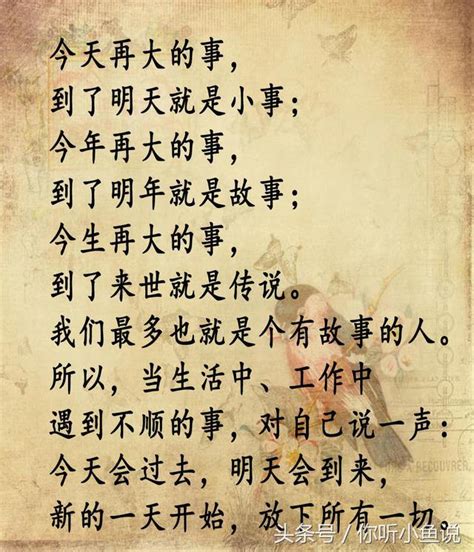 今天再大的事，
到了明天就是小事；
今年再大的事，
到了明年就是故事；
今生再大的事，
到了来世就是传说。
我们最多也就是个有故事的人。
所以，当生活中、工作中
遇到不顺的事，对自己说一声：
今天会过去，明天会到来，
新的一天开始，放下所有一切。
头条号/你听小鱼说